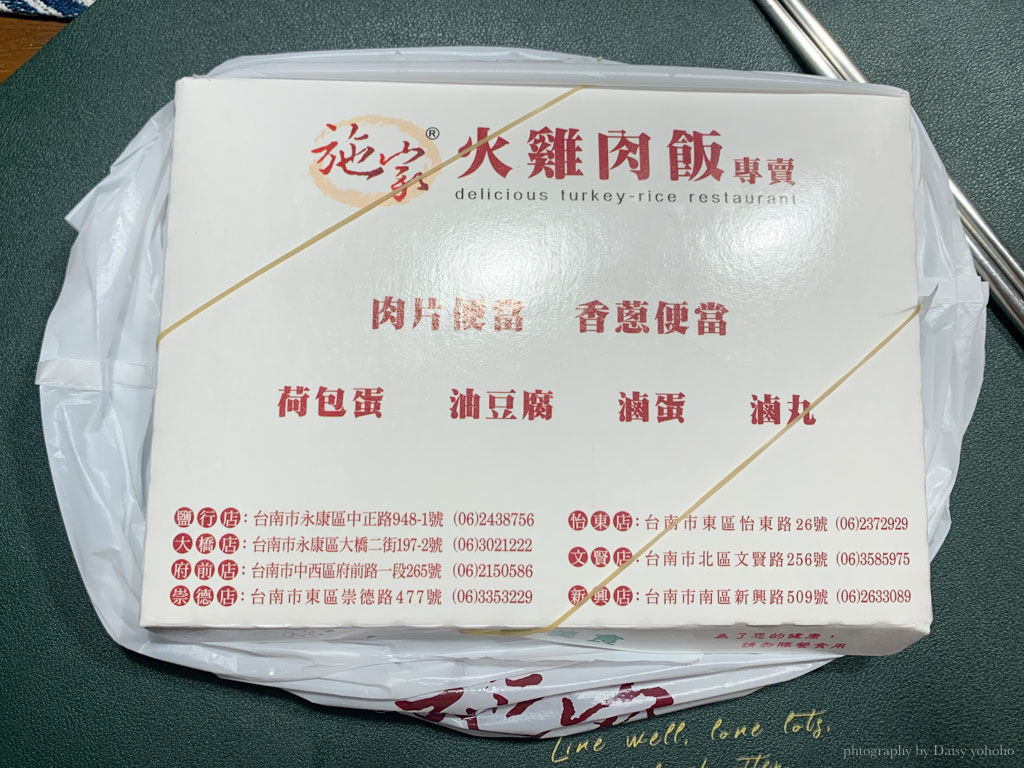 施家® 火雞肉飯專賣
delicious turkey-rice restaurant
肉片便當 香蔥便當
荷包蛋 油豆腐 滷蛋 滷丸
鹽行店：台南市永康區中正路948-1號 (06)2438756
大橋店：台南市永康區大橋二街197-2號 (06)3021222
府前店：台南市中西區府前路一段265號 (06)2150586
崇德店：台南市東區崇德路477號 (06)3353229
怡東店：台南市東區怡東路26號 (06)2372929
文賢店：台南市北區文賢路256號 (06)3585975
新興店：台南市南區新興路509號 (06)2633089
美食
為了您的健康，
請勿隔餐食用
Live well, love lots,
photography by Daisy yohoho